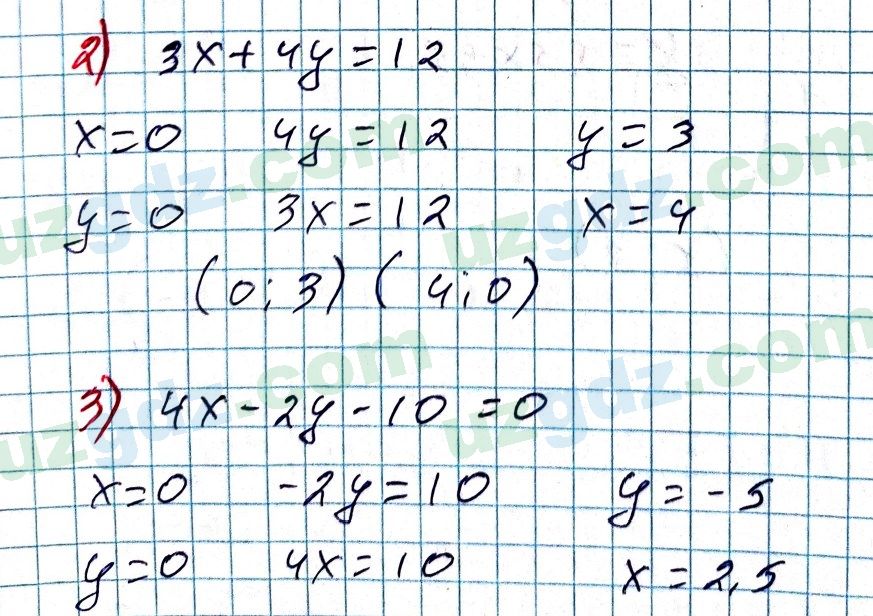 2) 3x + 4y = 12
x = 0 4y = 12 y = 3
y = 0 3x = 12 x = 4
(0; 3) (4; 0)
3) 4x - 2y - 10 = 0
x = 0 -2y = 10 y = -5
y = 0 4x = 10 x = 2,5
uzgdz.com
uzgdz.com
uzgdz.com
uzgdz.com